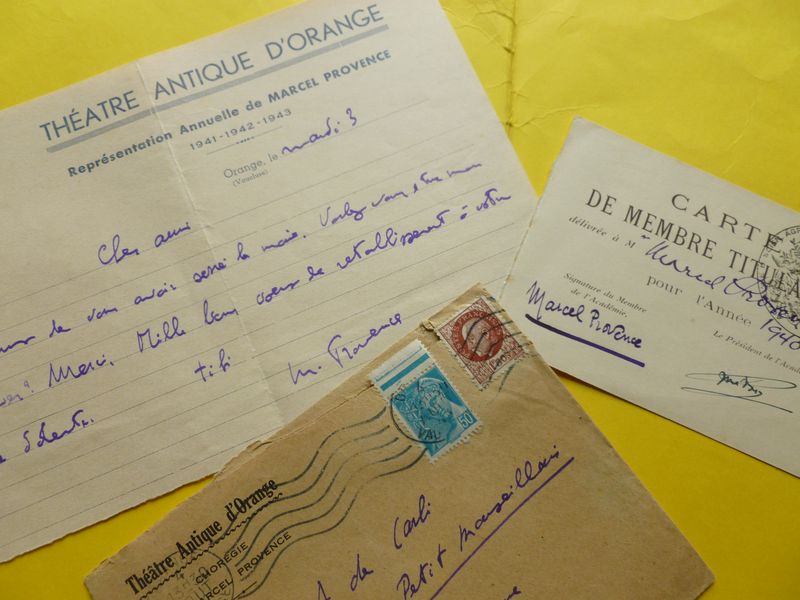 THÉATRE ANTIQUE D'ORANGE
Représentation Annuelle de MARCEL PROVENCE
1941-1942-1943
Orange, le mardi 3
(Vaucluse)
Cher ami
de vous avoir serré la main. Voulez vous être mon
Merci. Mille bons voeux de rétablissement à votre
tibi
M. Provence
CARTE
DE MEMBRE TITULA
délivrée à M Marcel Proven
pour l'Année 1940
Signature du Membre
de l'Académie.
Marcel Provence
Le Président de l'Acad
50
VAU
Théâtre Antique d'Orange
CHORÉGIE
MARCEL PROVENCE
de Carli
Petit Marseillais